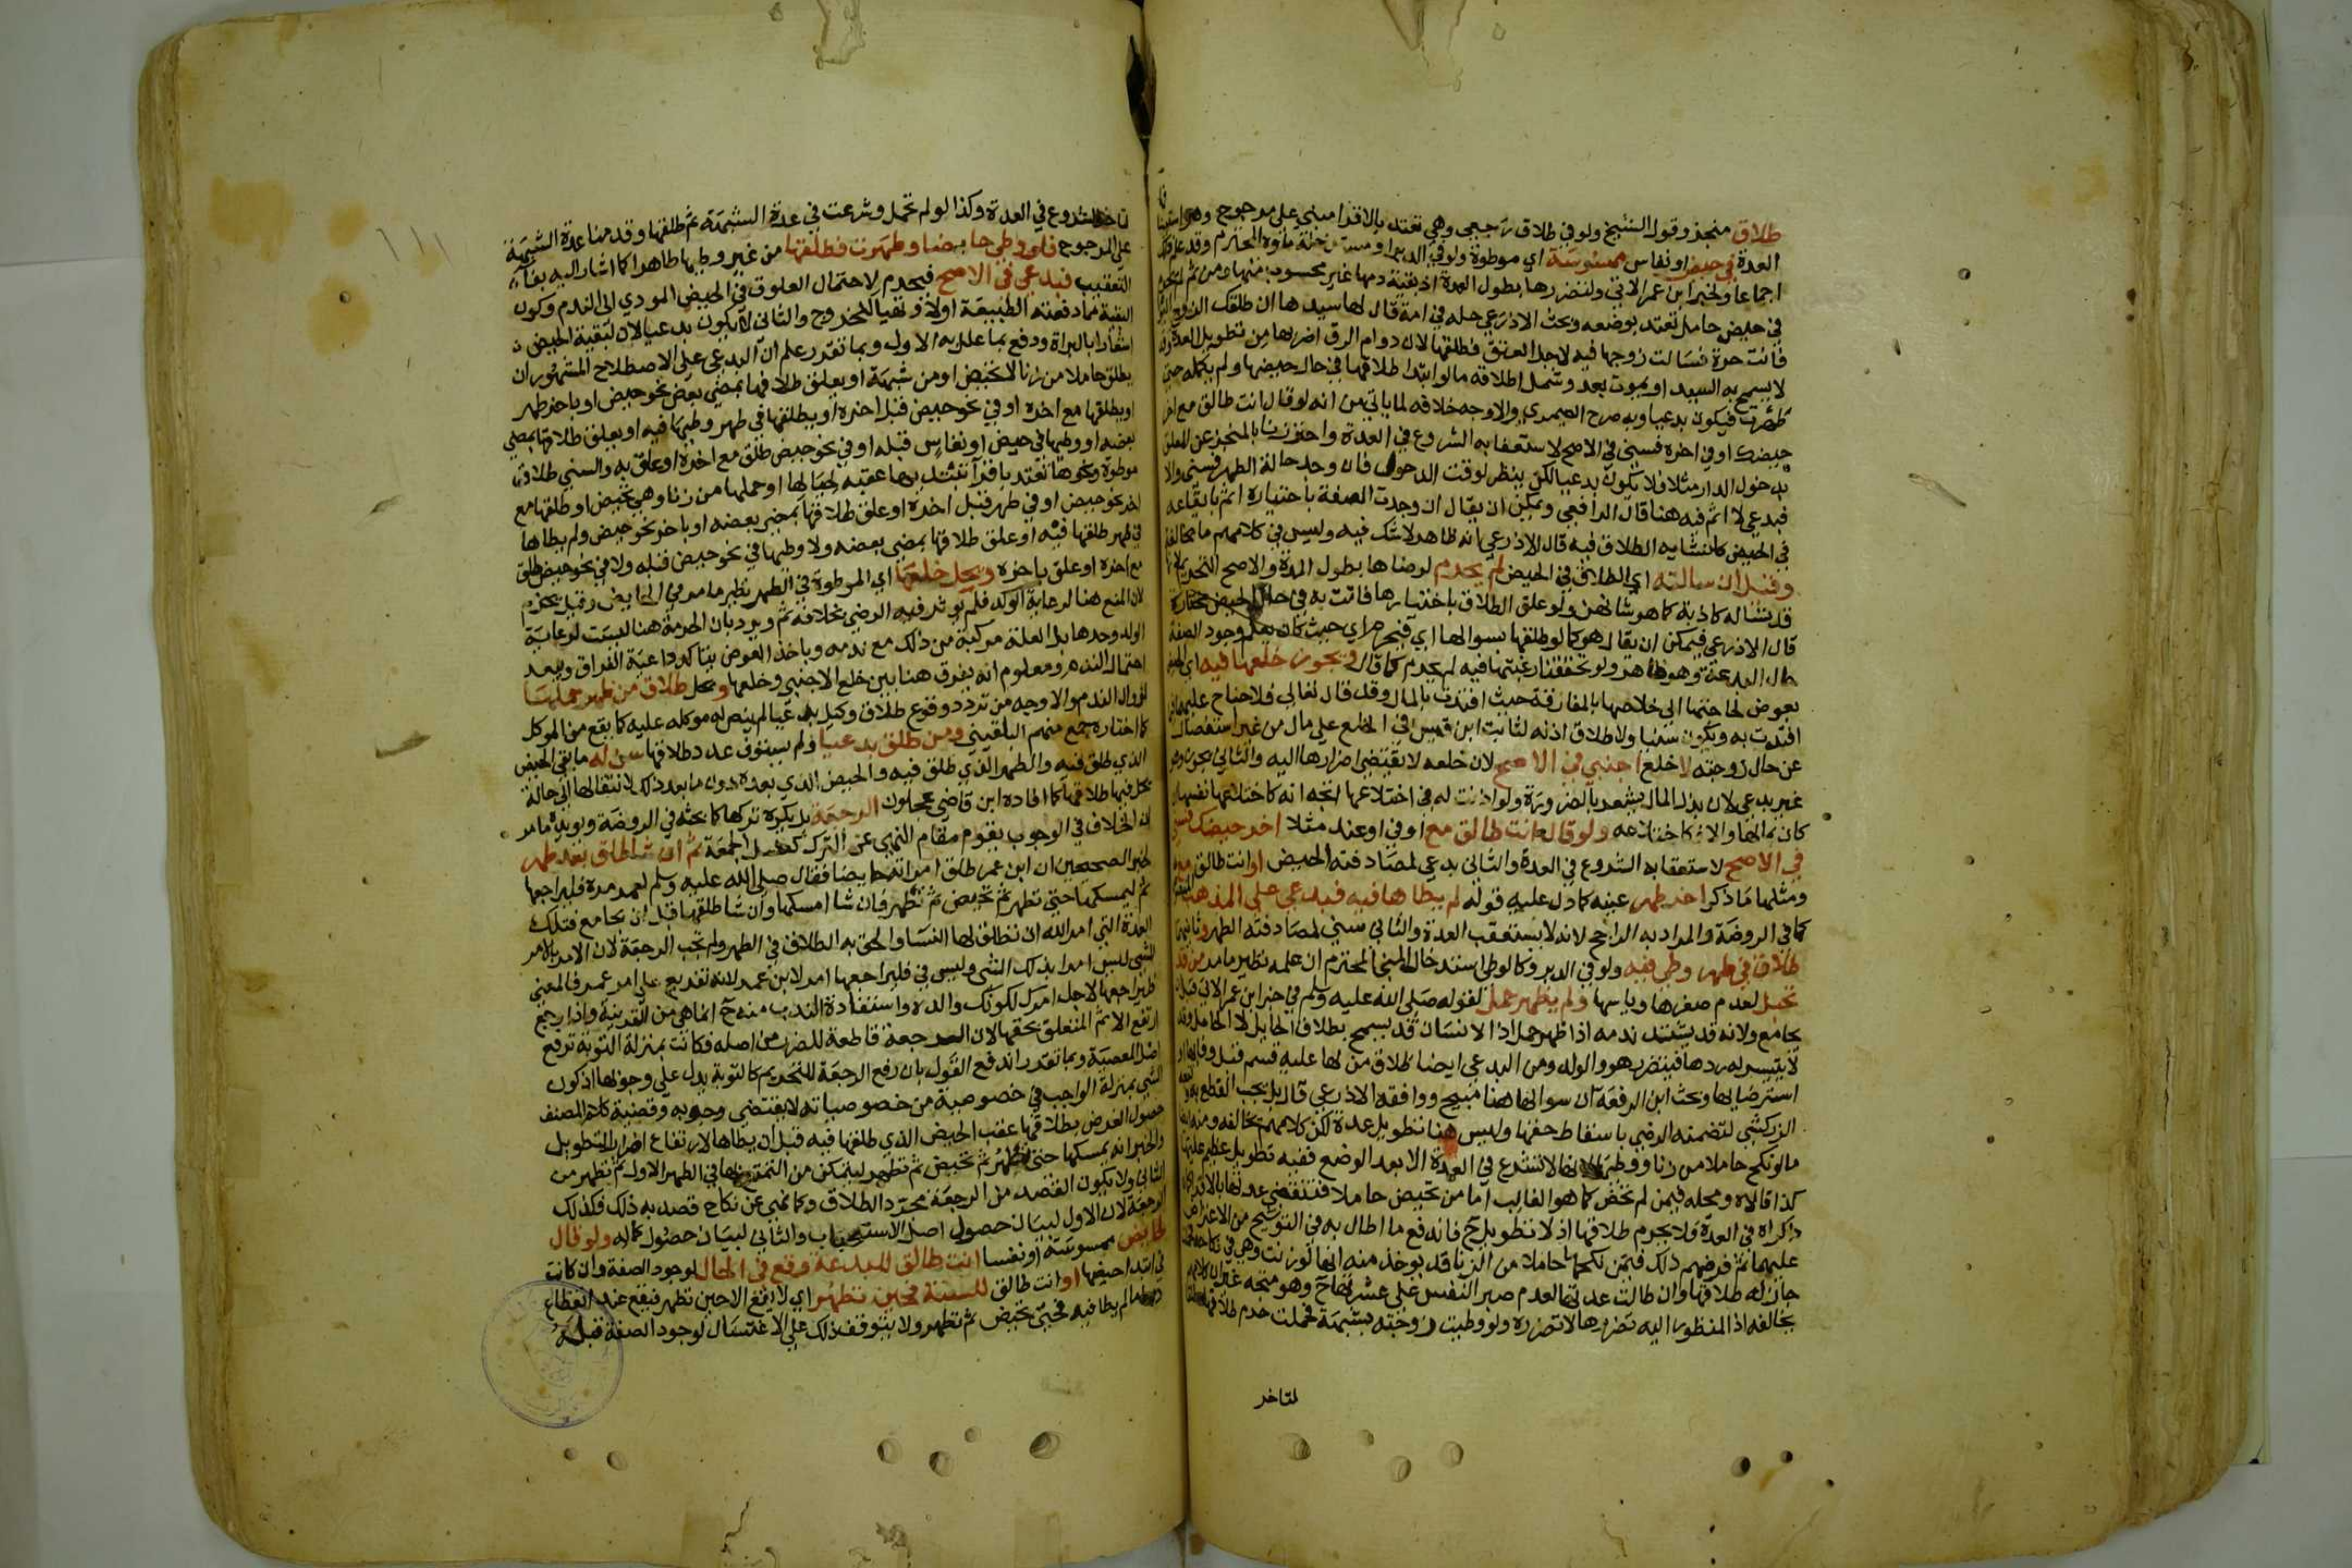 طلاق منجز وقول الشيخ ولو في طلاق رجعي وهي تعتد بالاقرا مبني على مرجوح وهو استينا
العدة في حيض او نفاس ممسوسة اي موطوة ولو في الدبر او مستدخلة ماوه المحترم وقد علم ذلك
اجماعا ولخبر ابن عمر الاتي ولتضررها بطول العدة اذ بقية دمها غير محسوب منها ومن ثم لم يحرم
في حيض حامل تعتد بوضعه وبحث الاذرعي حله في امة قال لها سيدها ان طلقك الزوج اليوم
فانت حرة فسالت زوجها فيه لاجل العتق فطلقها لان دوام الرق اضر بها من تطويل العدة وقد
لا يسمح به السيد او يموت بعد وشمل اطلاقه ما لو ابتدا طلاقها في حال حيضها ولم يكمله حتى
طهرت فيكون بدعيا وبه صرح الصيمري والاوجه خلافه لما ياتي من انه لو قال انت طالق مع اخر
حيضك او في اخره فسني في الاصح لاستعقابه الشروع في العدة واحترزنا بالمنجز عن المعلق
بدخول الدار مثلا فلا يكون بدعيا لكن ينظر لوقت الدخول فان وجد حالة الطهر فسني والا
فبدعي لا اثم فيه هنا قال الرافعي ويمكن ان يقال ان وجدت الصفة باختياره اثم بايقاعه
في الحيض كانشايه الطلاق فيه قال الاذرعي انه ظاهر لا شك فيه وليس في كلامهم ما يخالفه
وقيل ان سالته اي الطلاق في الحيض لم يحرم لرضاها بطول المدة والاصح التحريم لانها
قد تساله كاذبة كما هو شانهن ولو علق الطلاق باختيارها فاتت به في حال الحيض مختارة
قال الاذرعي فيمكن ان يقال هو كما لو طلقها بسوالها اي فيحرم اي حيث كان يعلم وجود الصفة
حال البدعة وهو ظاهر ولو تحققنا رغبتها فيه لم يحرم كما قال ويجوز خلعها فيه اي الحيض
بعوض لحاجتها الى خلاصها بالمفارقة حيث افتدت بالمال وقد قال تعالى فلا جناح عليهما فيما
افتدت به ويكون سنيا ولاطلاق اذنه لثابت ابن قيس في الخلع على مال من غير استفصال
عن حال زوجته لا خلع اجنبي في الاصح لان خلعه لا يقتضي اضرارها اليه والثاني يجوز وهو
غير بدعي لان بذل المال يشعر بالضرورة ولو اذنت له في اختلاعها اتجه انه كاختلاعها نفسها ان
كان بمالها والا فكاختلاعه ولو قال انت طالق مع او في او عند مثلا اخر حيضك فسني
في الاصح لاستعقابه الشروع في العدة والثاني بدعي لمصادفته الحيض او انت طالق مع
ومثلها ما ذكر اخر طهر عينه كما دل عليه قوله لم يطاها فيه فبدعي على المذهب
كما في الروضة والمراد به الراجح لانه لا يستعقب العدة والثاني سني لمصادفته الطهر وثانيهما
طلاق في طهر وطي فيه ولو في الدبر وكالوطي استدخال المني المحترم ان علمه نظير ما مر من قد
تحبل لعدم صغرها وياسها ولم يظهر حمل لقوله صلى الله عليه وسلم في خبر ابن عمر الاتي قبل ان
يجامع ولانه قد يشتد ندمه اذا ظهر حمل اذ الانسان قد يسمح بطلاق الحايل لا الحامل وقد
لا يتيسر له ردها فيتضرر هو والولد ومن البدعي ايضا طلاق من لها عليه قسم قبل وفايها او
استرضايها وبحث ابن الرفعة ان سوالها هنا مبيح ووافقه الاذرعي قال بل يجب القطع به وتبعه
الزركشي لتضمنه الرضى باسقاط حقها وليس هنا تطويل عدة لكن كلامهم يخالفه ومنه ايضا
ما لو نكح حاملا من زنا ووطيها لانها لا تشرع في العدة الا بعد الوضع ففيه تطويل عظيم عليها
كذا قالاه ومحله فيمن لم تحض كما هو الغالب اما من تحيض حاملا فتنقضي عدتها بالاقرا كما
ذكراه في العدة ولا يحرم طلاقها اذ لا تطويل ح فاندفع ما اطال به في التوشيح من الاعتراض
عليهما ثم فرضهم ذلك فيمن نكحها حاملا من الزنا قد يوخذ منه انها لو زنت وهي في نكاحه فحملت
جاز له طلاقها وان طالت عدتها لعدم صبر النفس على عشرتها ح وهو متجه غير ان كلامهم
يخالفه اذ المنظور اليه تضررها لا تضرره ولو وطيت زوجته بشبهة فحملت حرم طلاقها مطلقا
لتاخر
لتاخر الشروع في العدة وكذا لو لم تحمل وشرعت في عدة الشبهة ثم طلقها وقدمنا عدة الشبهة
على المرجوح فلو وطي حايضا وطهرت فطلقها من غير وطيها طاهرا كما اشار اليه بفاء
التعقيب فبدعي في الاصح فيحرم لاحتمال العلوق في الحيض المودي الى الندم وكون
البقية مما دفعته الطبيعة اولا وتهيا للخروج والثاني لا يكون بدعيا لان لبقية الحيض
اشعارا بالبراة ودفع بما علل به الاول وبما تقرر علم ان البدعي على الاصطلاح المشهور ان
يطلق حاملا من زنا لا تحيض او من شبهة او يعلق طلاقها بمضي بعض نحو حيض او باخر طهر
او يطلقها مع اخره او في نحو حيض قبل اخره او يطلقها في طهر وطيها فيه او يعلق طلاقها بمضي
بعضه او وطيها في حيض او نفاس قبله او في نحو حيض طلق مع اخره او علق به والسني طلاق
موطوة ونحوها تعتد باقرآ تبتديها عقبه لحيالها او حملها من زنا وهي تحيض او طلقها مع
اخر نحو حيض او في طهر قبل اخره او علق طلاقها بمضي بعضه او باخر نحو حيض ولم يطاها
في طهر طلقها فيه او علق طلاقها بمضي بعضه ولا وطيها في نحو حيض قبله ولا في نحو حيض طلق
مع اخره او علق باخره ويحل خلعها اي الموطوة في الطهر نظير ما مر في الحايض وقيل يحرم
لان المنع هنا لرعاية الولد فلم يوثر فيه الرضى بخلافه ثم ويرد بان الحرمة هنا ليست لرعاية
الولد وحدها بل العلة مركبة من ذلك مع ندمه وباخذ العوض يتاكد داعية الفراق ويبعد
احتمال الندم ومعلوم انه يفرق هنا بين خلع الاجنبي وخلعها ويحل طلاق من ظهر حملها
لزوال الندم والاوجه من تردد وقوع طلاق وكيل بدعيا لم ينص له موكله عليه كما يقع من الموكل
كما اختاره جمع منهم البلقيني ومن طلق بدعيا ولم يستوف عدد طلاقها سن له ما بقي الحيض
الذي طلق فيه والطهر الذي طلق فيه والحيض الذي بعده دون ما بعد ذلك لانتقالها الى حالة
يحل فيها طلاقها كما افاده ابن قاضي عجلون الرجعة بل يكره تركها كما بحثه في الروضة ويويده ما مر
ان الخلاف في الوجوب يقوم مقام النهي عن الترك كغسل الجمعة ثم ان شا طلق بعد طهر
لخبر الصحيحين ان ابن عمر طلق امراته حايضا فقال صلى الله عليه وسلم لعمر مره فليراجعها
ثم ليمسكها حتى تطهر ثم تحيض ثم تطهر فان شا امسكها وان شا طلقها قبل ان يجامع فتلك
العدة التي امر الله ان تطلق لها النسا والحق به الطلاق في الطهر ولم تجب الرجعة لان الامر بالامر
بالشي ليس امرا بذلك الشي وليس في فليراجعها امر لابن عمر لانه تفريع على امر عمر فالمعنى
فليراجعها لاجل امرك لكونك والده واستفادة الندب منه ح انما هي من القرينة واذا راجع
ارتفع الاثم المتعلق بحقها لان الرجعة قاطعة للضرر من اصله فكانت بمنزلة التوبة ترفع
اصل المعصية وبما تقرر اندفع القول بان رفع الرجعة للتحريم كالتوبة يدل على وجوبها اذ كون
الشي بمنزلة الواجب في خصوصية من خصوصياته لا يقتضي وجوبه وقضية كلام المصنف
حصول الغرض بطلاقها عقب الحيض الذي طلقها فيه قبل ان يطاها لارتفاع اضرار التطويل
والخبر انه يمسكها حتى تطهر ثم تحيض ثم تطهر ليتمكن من التمتع بها في الطهر الاول ثم تطهر من
الثاني ولا يكون القصد من الرجعة مجرد الطلاق وكما نهي عن نكاح قصد به ذلك فكذلك
الرجعة لان الاول لبيان حصول اصل الاستحباب والثاني لبيان حصول كماله ولو قال
لحايض ممسوسة او نفسا انت طالق للبدعة وقع في الحال لوجود الصفة وان كانت
في ابتدا حيضها او انت طالق للسنة فحين تطهر اي لا يقع الا حين تطهر فيقع عند انقطاع
دمها ما لم يطا فيه فحتى تحيض ثم تطهر ولا يتوقف ذلك على الاغتسال لوجود الصفة قبله
١١١